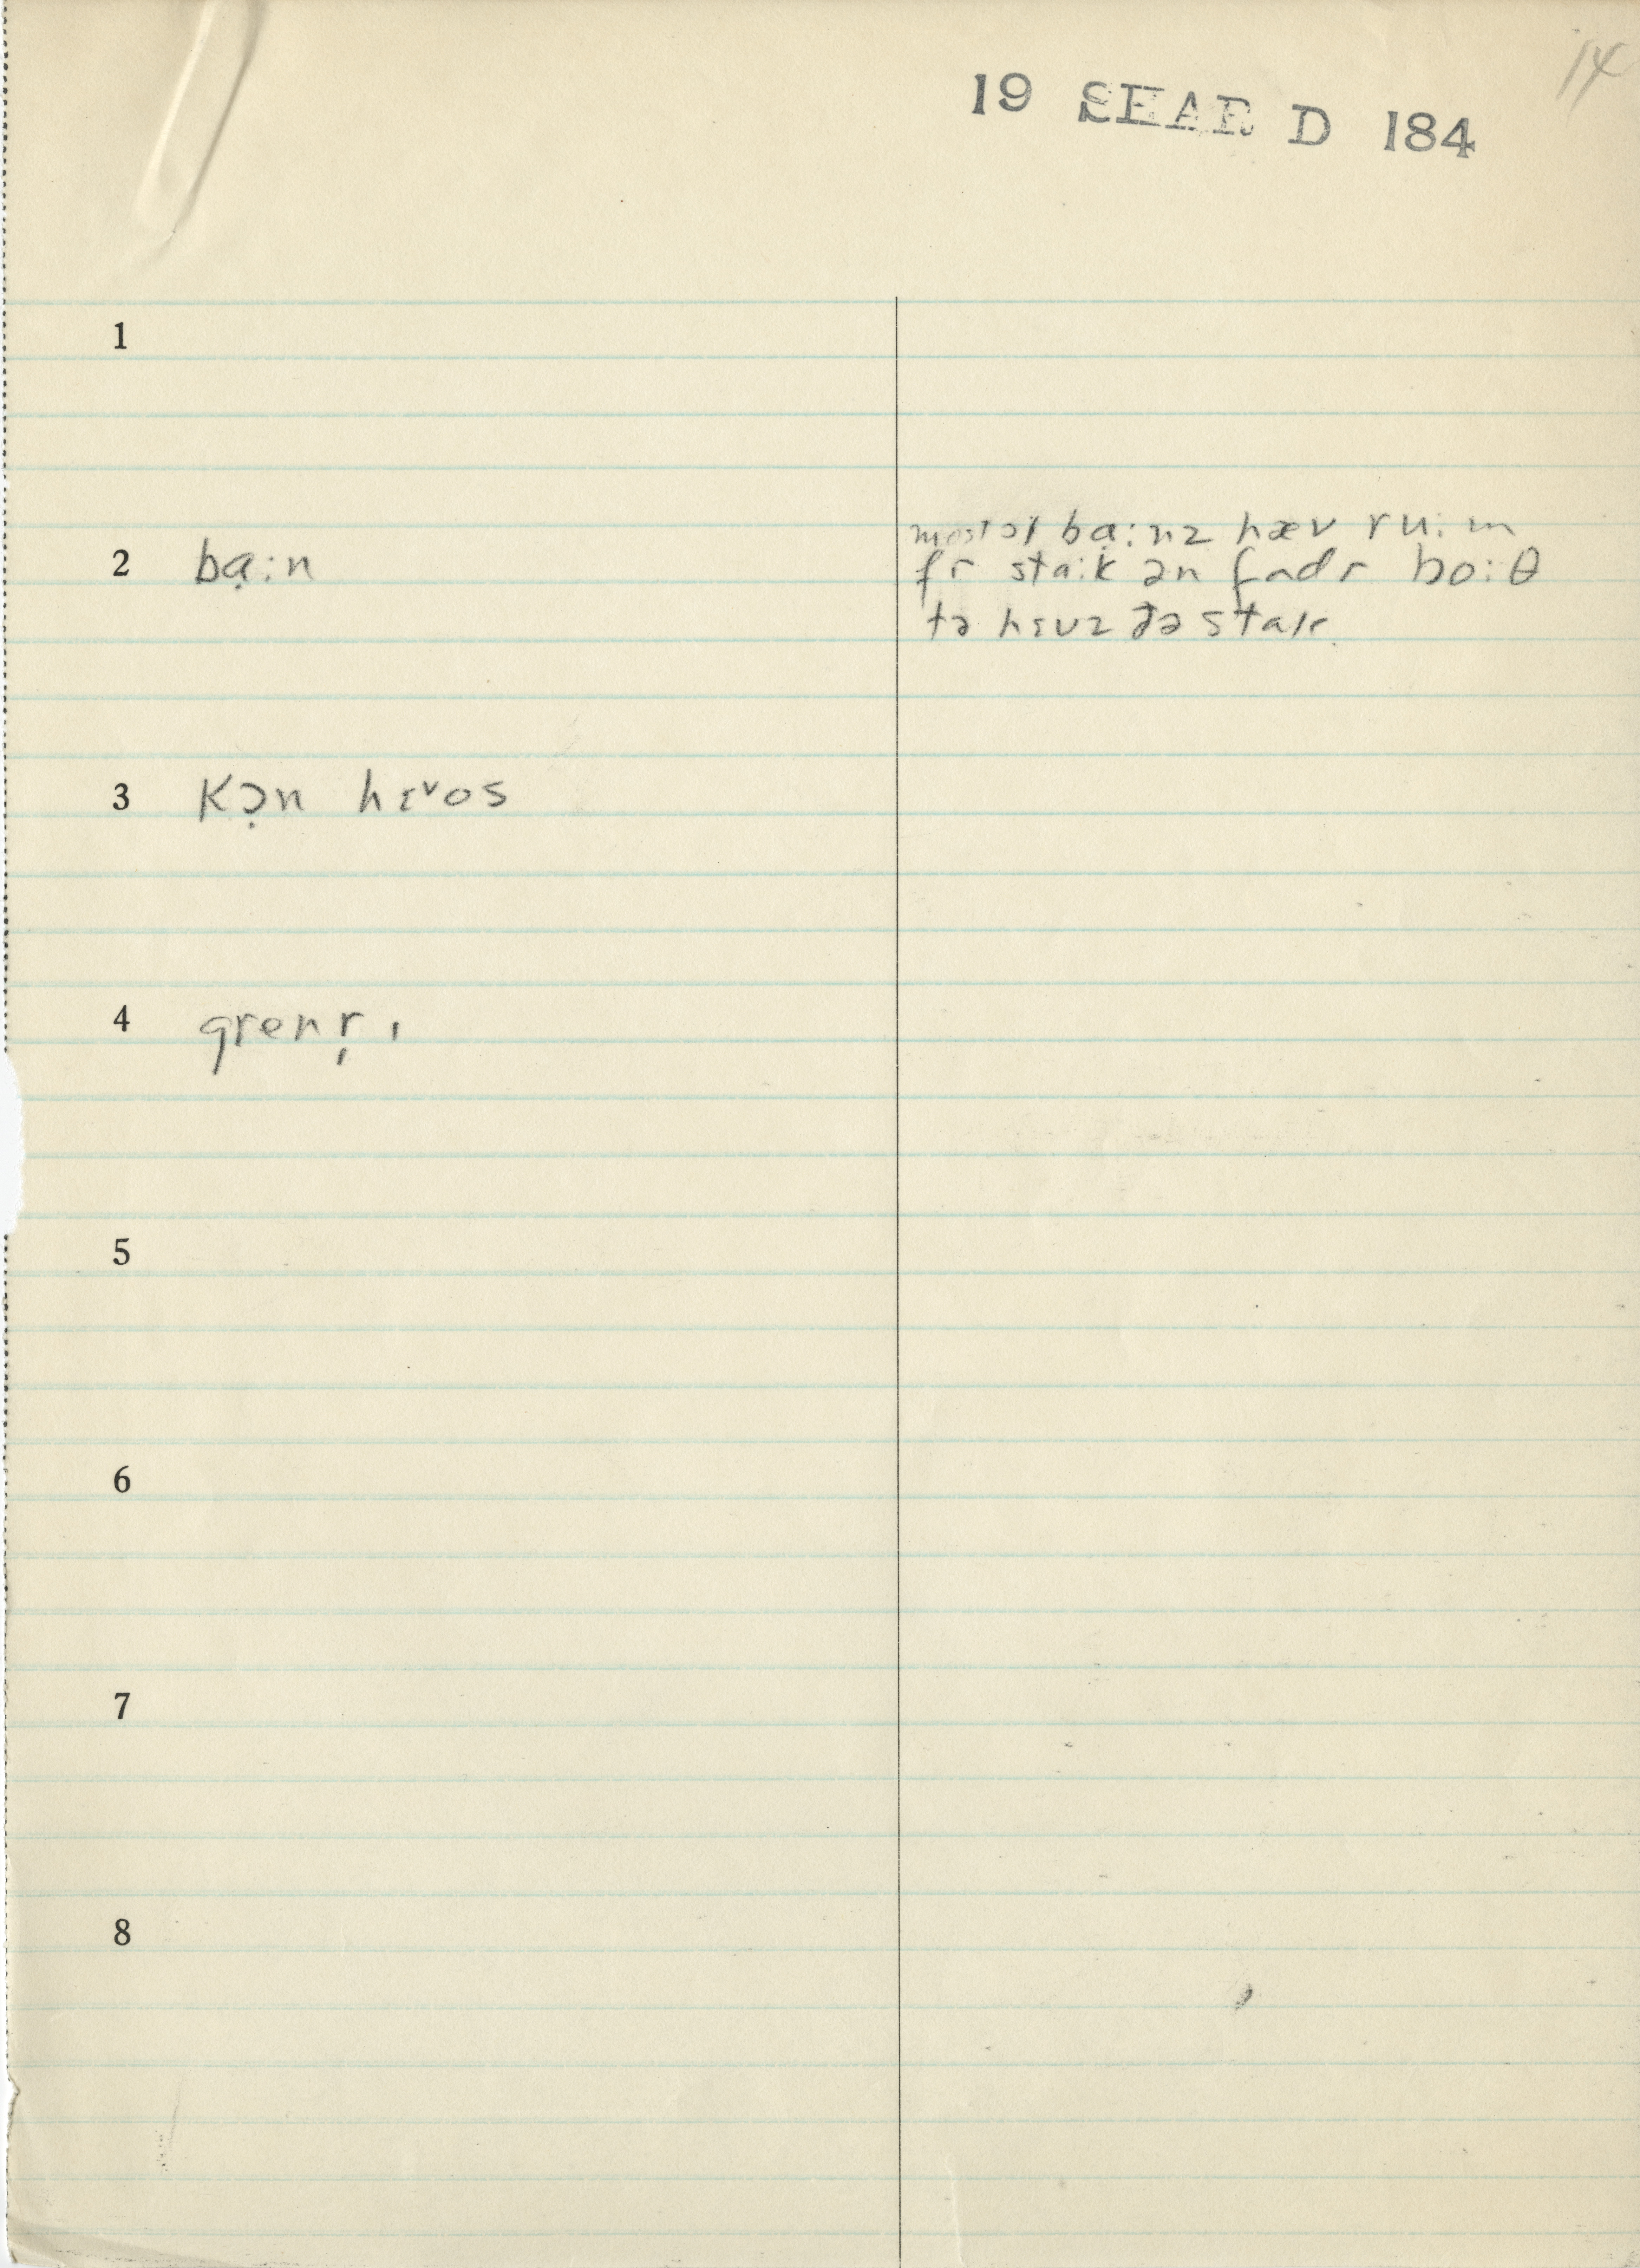 14
19 SHAR D 184
1
2 bạ:n
most əf bạ:nz hæv ru:m
fr sta:k ən fadr bo:θ
tə hɛuz ðə stak.
3 kɔ̣n hɛᵛos
4 grenr̩ ı
5
6
7
8